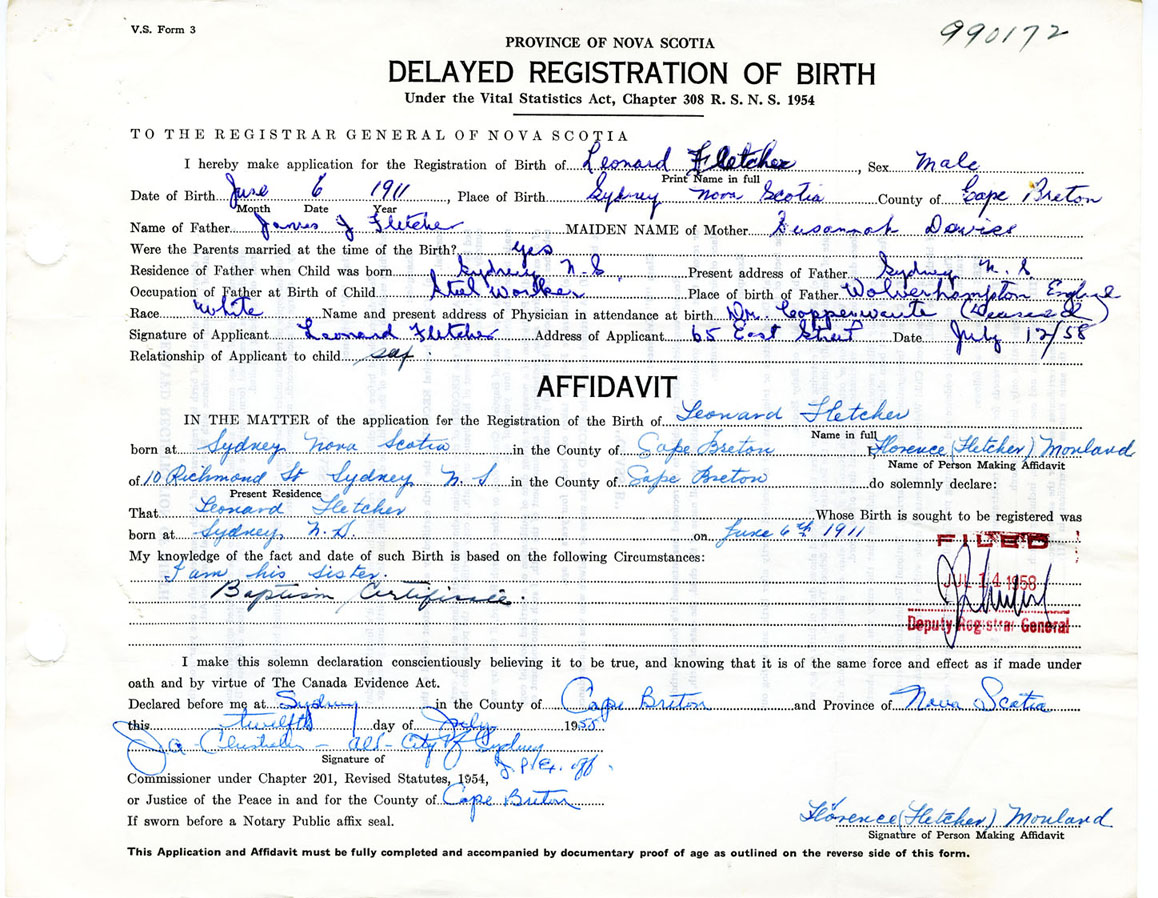 V.S. Form 3
990172
PROVINCE OF NOVA SCOTIA
DELAYED REGISTRATION OF BIRTH
Under the Vital Statistics Act, Chapter 308 R. S. N. S. 1954
TO THE REGISTRAR GENERAL OF NOVA SCOTIA
I hereby make application for the Registration of Birth of Leonard Fletcher, Sex Male
Print Name in full
Date of Birth June 6 1911, Place of Birth Sydney Nova Scotia County of Cape Breton
Month Date Year
Name of Father James J Fletcher MAIDEN NAME of Mother Susannah Davies
Were the Parents married at the time of the Birth? yes
Residence of Father when Child was born Sydney N.S. Present address of Father Sydney N. S.
Occupation of Father at Birth of Child Steel Worker Place of birth of Father Wolverhampton England
Race White Name and present address of Physician in attendance at birth Dr. (Deceased)
Signature of Applicant Leonard Fletcher Address of Applicant 65 East Street Date July 12/58
Relationship of Applicant to child self
AFFIDAVIT
IN THE MATTER of the application for the Registration of Birth of Leonard Fletcher
Name in full
born at Sydney Nova Scotia in the County of Cape Breton I, Florence (Fletcher) Morland
Name of Person Making Affidavit
of 10 Richmond St Sydney N. S in the County of Cape Breton do solemnly declare:
Present Residence
That Leonard Fletcher Whose Birth is sought to be registered was
born at Sydney, N.S. on June 6th 1911
My knowledge of the fact and date of such Birth is based on the following Circumstances:
I am his sister.
Baptism Certificate.
FILED
JUL 14 1958
Deputy Registrar General
I make this solemn declaration conscientiously believing it to be true, and knowing that it is of the same force and effect as if made under
oath and by virtue of The Canada Evidence Act.
Declared before me at Sydney in the County of Cape Breton and Province of Nova Scotia
this twelfth day of July 1958
City of Sydney
Signature of
J.P. Ex. off.
Commissioner under Chapter 201, Revised Statutes, 1954,
or Justice of the Peace in and for the County of Cape Breton
If sworn before a Notary Public affix seal.
Florence (Fletcher) Morland
Signature of Person Making Affidavit
This Application and Affidavit must be fully completed and accompanied by documentary proof of age as outlined on the reverse side of this form.